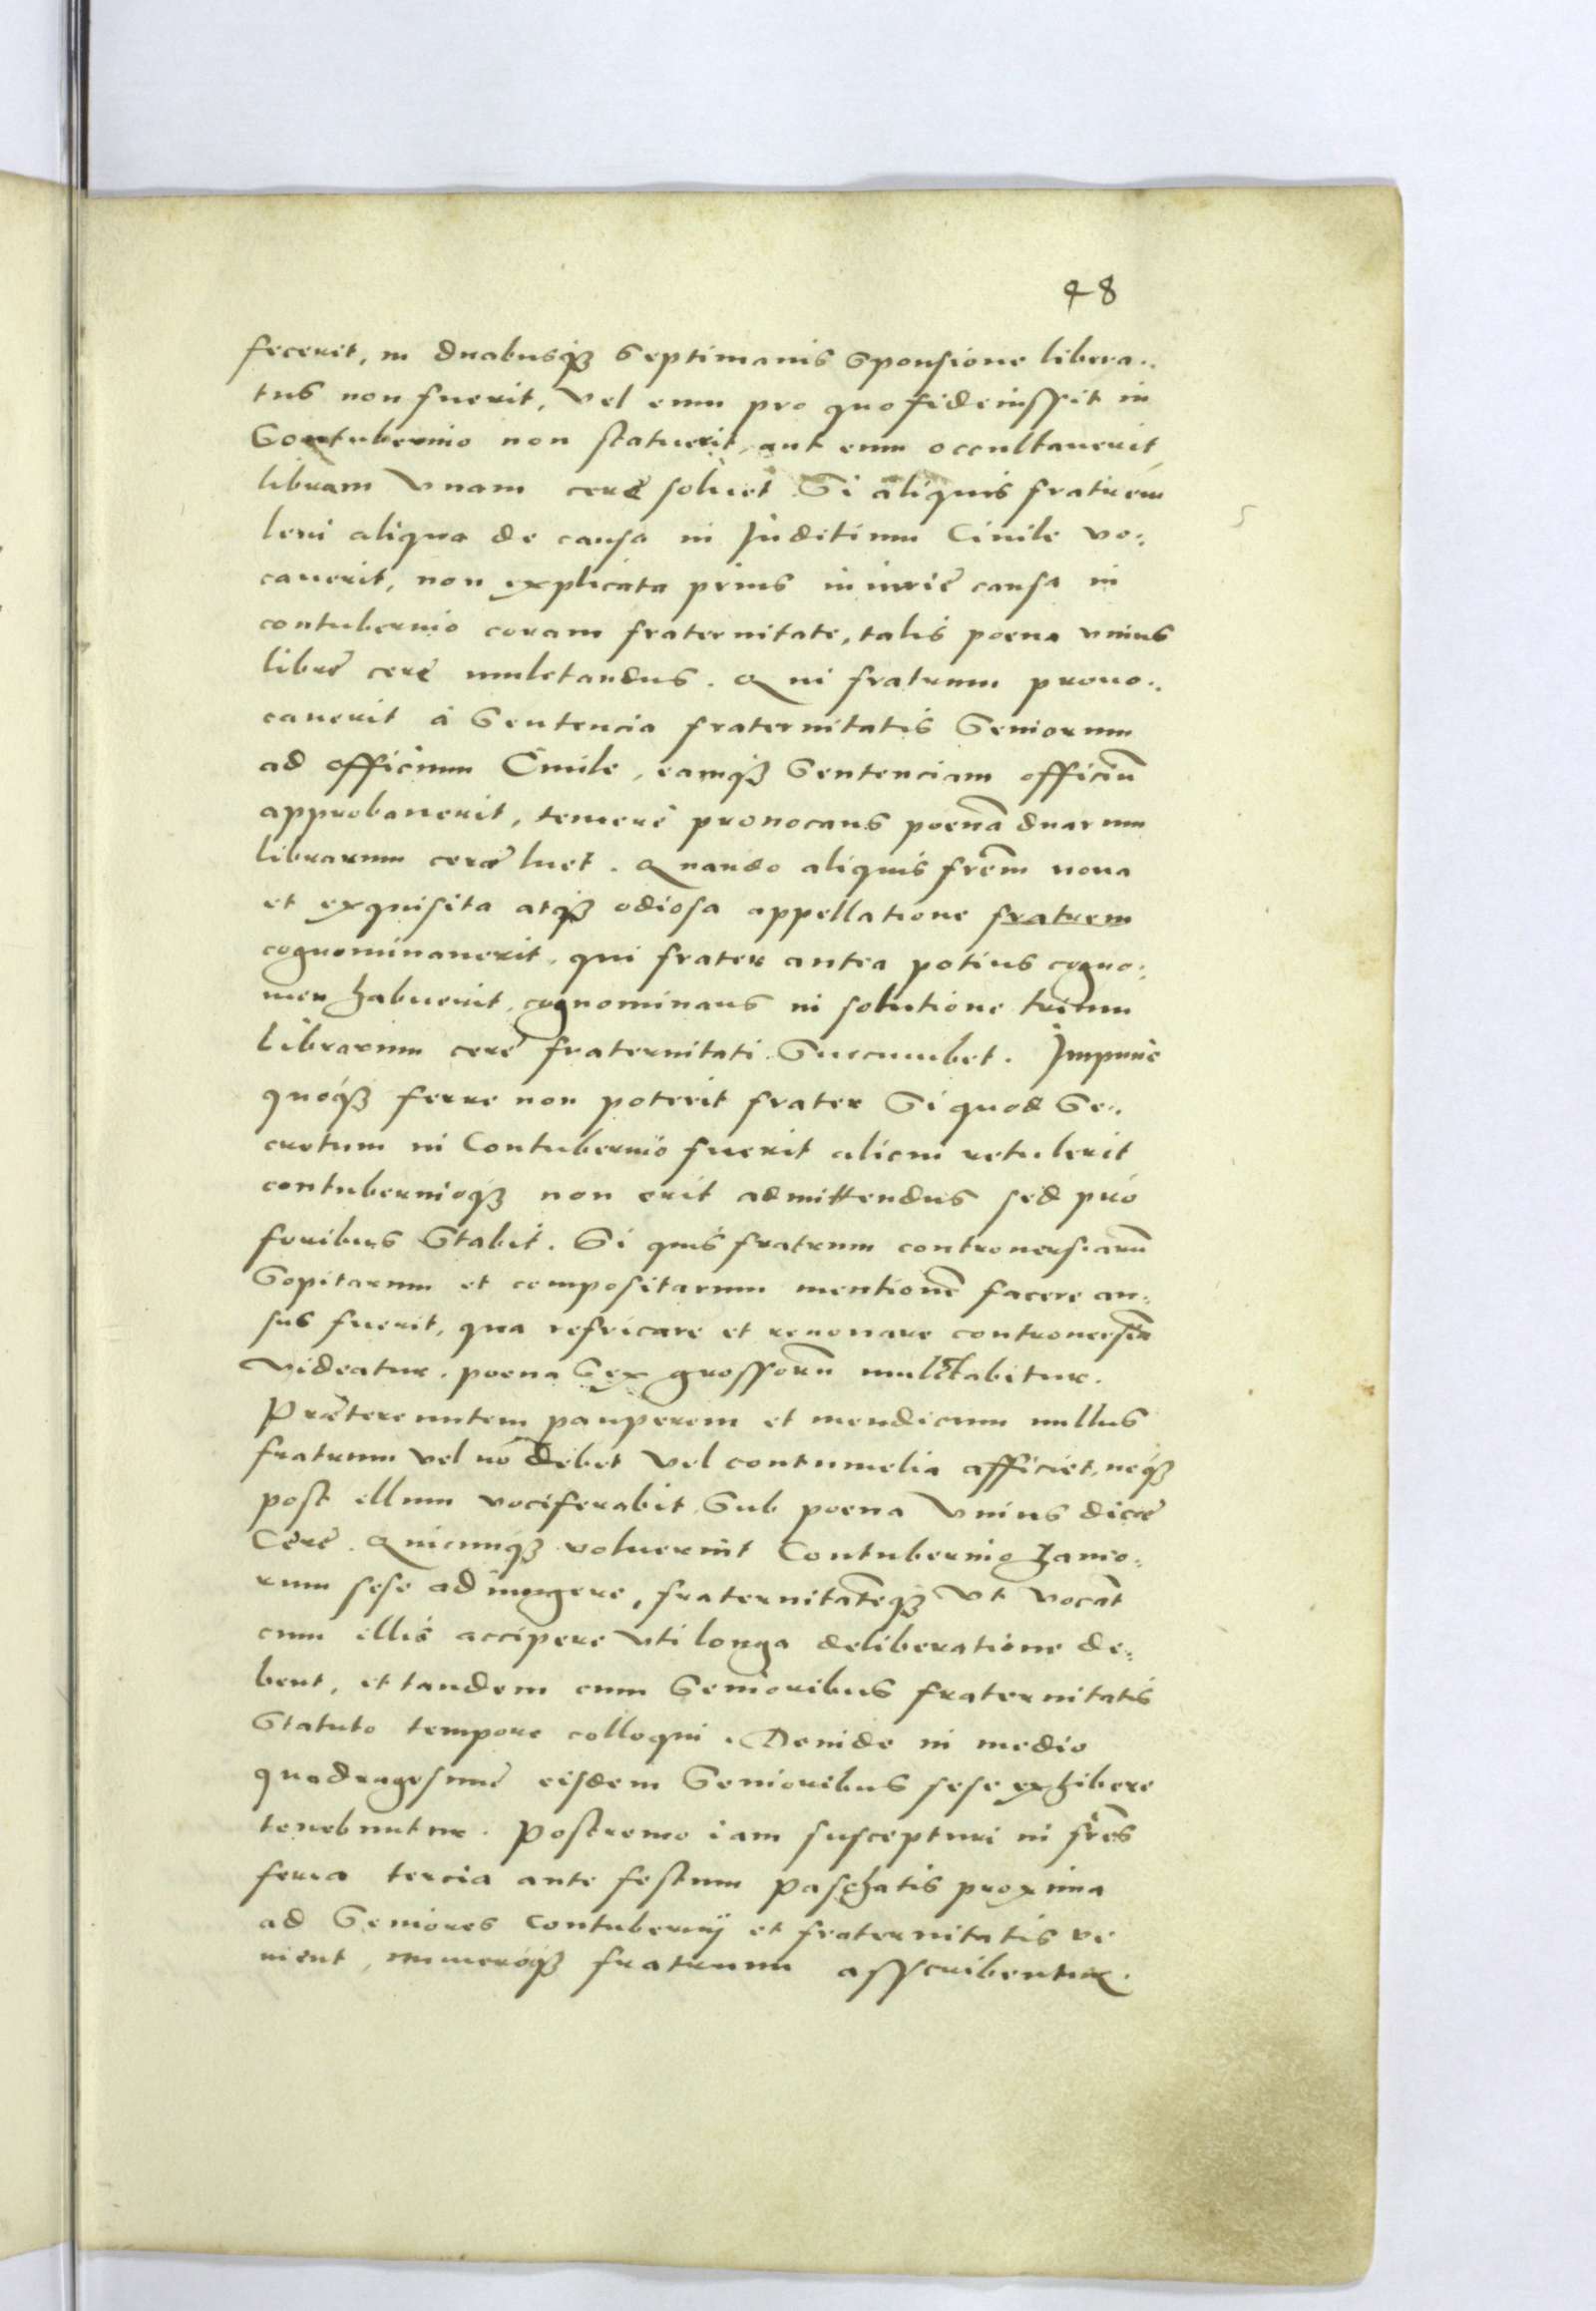 48
fecerit, in duabusqꝫ Septimanis Sponsione libera:
tus non fuerit, vel eum pro quo fideiussit in
Contubernio non statuerit, aut eum occultauerit
libram vnam cerę soluet Si aliquis fratrem
leui aliqua de causa in Juditium Ciuile vo:
cauerit, non explicata prius iniurię causa in
contubernio coram fraternitate, talis poena vnius
librę cerę mulctandus. Qui fratrum prouo:
cauerit á Sentencia fraternitatis Seniorum
ad officium Ciuile, eamqꝫ Sentenciam officiũ
approbauerit, temerè prouocans poenã duarum
librarum cerae luet. Quando aliquis frẽm noua
et exquisita atqꝫ odiosa appellatione fratrem
cognominauerit, qui frater antea potius cogno:
men habuerit, cognominans in solutione trium
librarum cerę fraternitati Succumbet. Jmpunè
quoqꝫ ferre non poterit frater Si quod Se:
cretum in Contubernio fuerit alicui retulerit
contubernioqꝫ non erit admittendus sed pro
foribus Stabit. Si quis fratrum controuersiarũ
Sopitarum et compositarum mentionẽ facere au:
sus fuerit, qua refricare et renouare controuersiã
videatur, poena Sex grossorũ mulctabitur.
Prætereuntem pauperem et mendicum nullus
fratrum vel nõ debet vel contumelia afficiet, neqꝫ
post illum vociferabit Sub poena vnius
Cerę. Quicunqꝫ voluerint Contubernio
rum sese adiungere, fraternitatẽqꝫ vt vocãt
cum illis accipere vti longa deliberatione de:
bent, et tandem cum Senioribus fraternitatis
Statuto tempore colloqui. Deinde in medio
quadragesimę eisdem Senioribus sese exhibere
tenebuntur. Postremo iam suscepturi in frẽs
feria tercia ante festum Paschatis proxima
ad Seniores Contubernij et fraternitatis ve
nient, numeroqꝫ fratrum asscribentur.